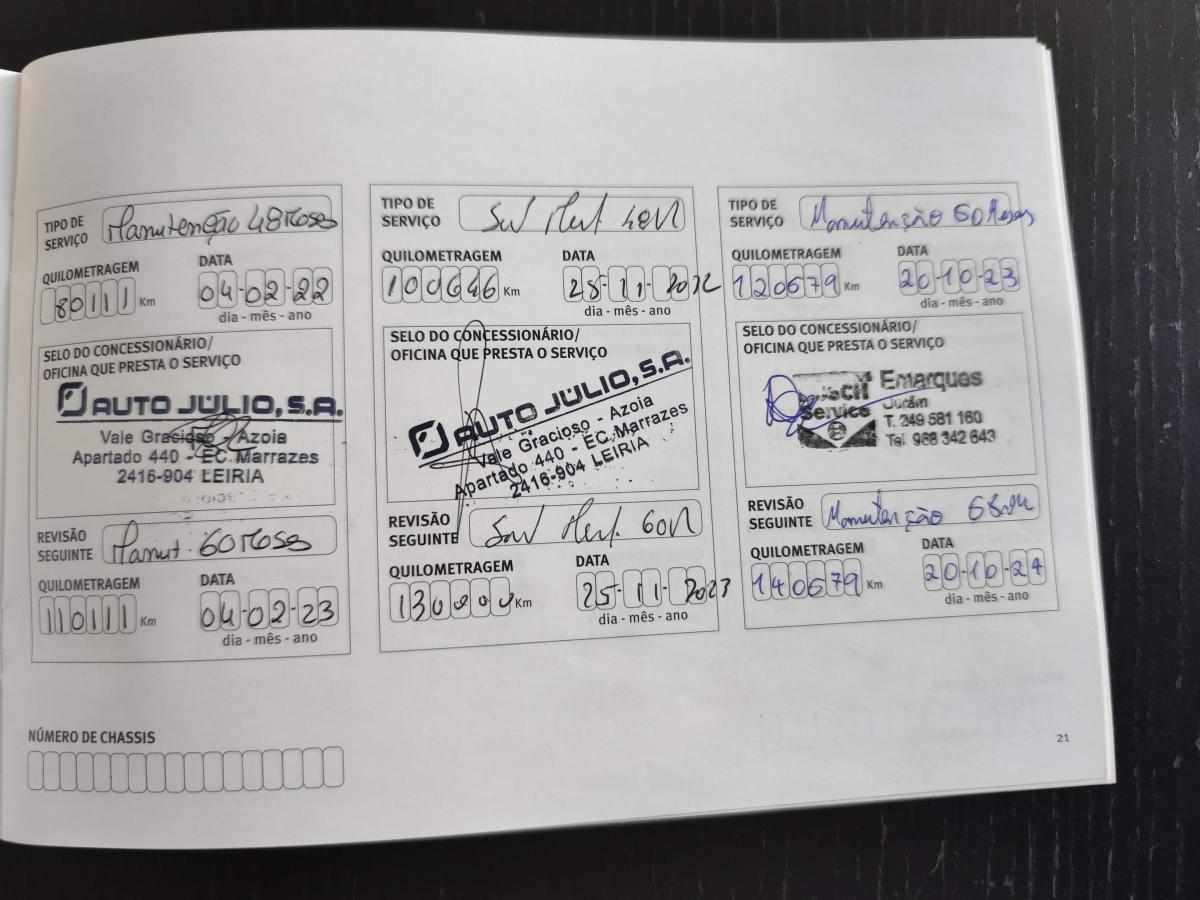 TIPO DE SERVIÇO Manutenção 48 Meses
QUILOMETRAGEM
80111 Km
DATA
04-02-22
dia - mês - ano
SELO DO CONCESSIONÁRIO/
OFICINA QUE PRESTA O SERVIÇO
AUTO JÚLIO, S.A.
Vale Gracioso - Azoia
Apartado 440 - EC Marrazes
2416-904 LEIRIA
REVISÃO SEGUINTE Manut. 60 Meses
QUILOMETRAGEM
110111 Km
DATA
04-02-23
dia - mês - ano
TIPO DE SERVIÇO
QUILOMETRAGEM
100646 Km
DATA
25-11-2022
dia - mês - ano
SELO DO CONCESSIONÁRIO/
OFICINA QUE PRESTA O SERVIÇO
AUTO JÚLIO, S.A.
Vale Gracioso - Azoia
Apartado 440 - EC Marrazes
2416-904 LEIRIA
REVISÃO SEGUINTE 60M
QUILOMETRAGEM
130000 Km
DATA
25-11-2023
dia - mês - ano
TIPO DE SERVIÇO Manutenção 60 Meses
QUILOMETRAGEM
120679 Km
DATA
20-10-23
dia - mês - ano
SELO DO CONCESSIONÁRIO/
OFICINA QUE PRESTA O SERVIÇO
Emarques
Service Ourém
T. 249 581 160
Tel. 968 342 643
REVISÃO SEGUINTE Manutenção
QUILOMETRAGEM
140679 Km
DATA
20-10-24
dia - mês - ano
NÚMERO DE CHASSIS
21